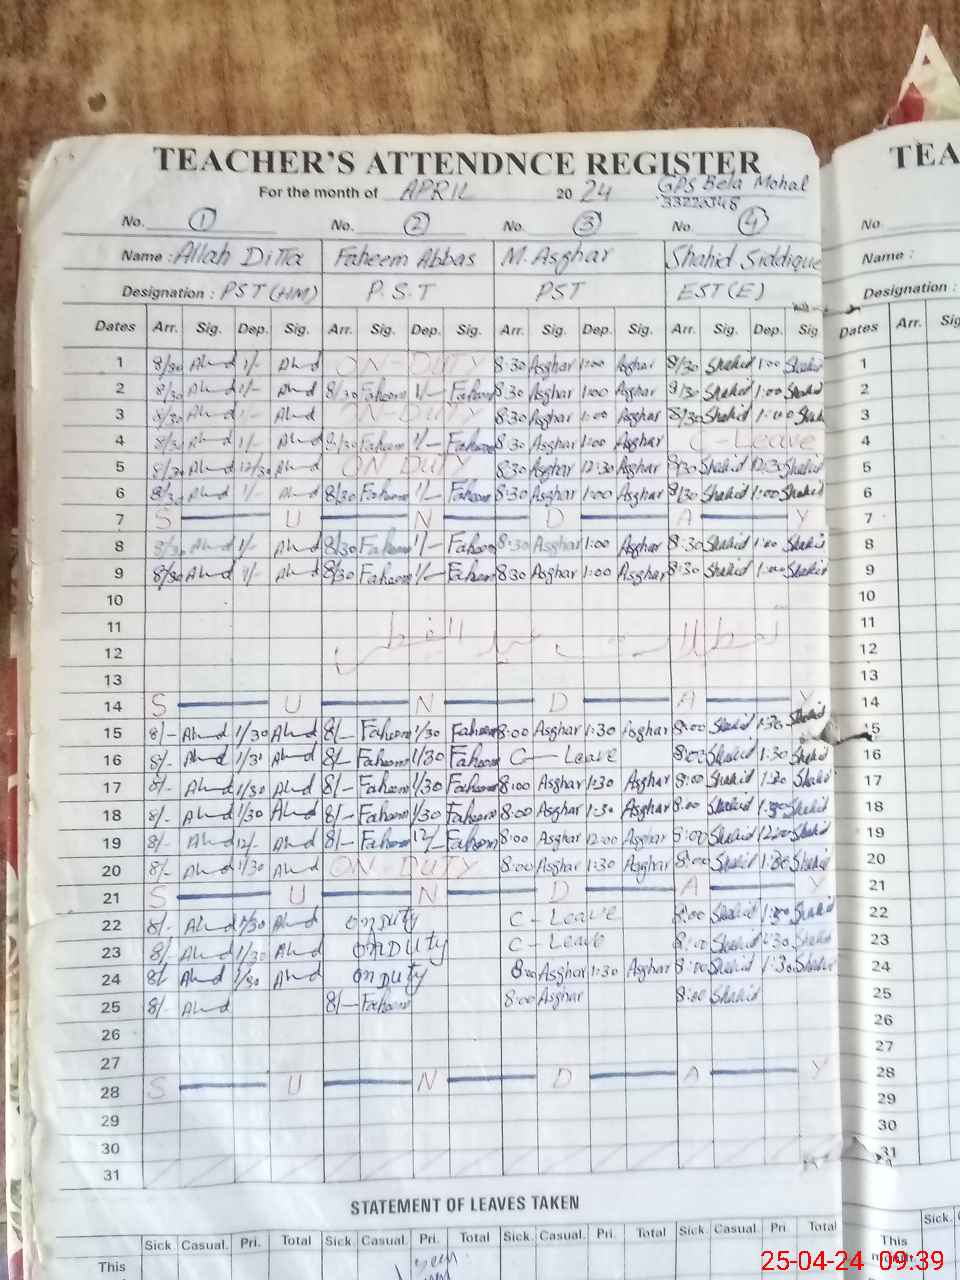 TEACHER'S ATTENDNCE REGISTER TEA
For the month of APRIL 20 24 GPS Bela Mohal
33220348
No. 1 No. 2 No. 3 No. 4 No.
Name : Allah Ditta Faheem Abbas M. Asghar Shahid Siddique Name :
Designation : PST (HM) P.S.T PST EST(E) Designation :
Dates Arr. Sig. Dep. Sig. Arr. Sig. Dep. Sig. Arr. Sig. Dep. Sig. Arr. Sig. Dep. Sig Dates Arr. Sig
1 8/30 1/- ON-DUTY 8:30 Asghar 1:00 Asghar 8/30 Shahid 1:00 Shahid 1
2 8/30 1/- 8/30 Faheem 1/- Faheem 8:30 Asghar 1:00 Asghar 8/30 Shahid 1:00 Shahid 2
3 8/30 1/- ON-DUTY 8:30 Asghar 1:00 Asghar 8/30 Shahid 1:00 Shahid 3
4 8/30 1/- 8/30 Faheem 1/- Faheem 8:30 Asghar 1:00 Asghar C-Leave 4
5 8/30 12/30 ON DUTY 8:30 Asghar 12:30 Asghar 8/30 Shahid 12:30 Shahid 5
6 8/30 1/- 8/30 Faheem 1/- Faheem 8:30 Asghar 1:00 Asghar 8/30 Shahid 1:00 Shahid 6
7 S U N D A Y 7
8 8/30 1/- 8/30 Faheem 1/- Faheem 8:30 Asghar 1:00 Asghar 8:30 Shahid 1:00 Shahid 8
9 8/30 1/- 8/30 Faheem 1/- Faheem 8:30 Asghar 1:00 Asghar 8:30 Shahid 1:00 Shahid 9
10 10
11 تعطیلات عید الفطر 11
12 12
13 13
14 S U N D A Y 14
15 8/- 1/30 8/- Faheem 1/30 Faheem 8:00 Asghar 1:30 Asghar 8:00 Shahid 1:30 Shahid 15
16 8/- 1/30 8/- Faheem 1/30 Faheem C - Leave 8:00 Shahid 1:30 Shahid 16
17 8/- 1/30 8/- Faheem 1/30 Faheem 8:00 Asghar 1:30 Asghar 8:00 Shahid 1:30 Shahid 17
18 8/- 1/30 8/- Faheem 1/30 Faheem 8:00 Asghar 1:30 Asghar 8:00 Shahid 1:30 Shahid 18
19 8/- 12/- 8/- Faheem 12/- Faheem 8:00 Asghar 12:00 Asghar 8:00 Shahid 12:00 Shahid 19
20 8/- 1/30 ON-DUTY 8:00 Asghar 1:30 Asghar 8:00 Shahid 1:30 Shahid 20
21 S U N D A Y 21
22 8/- 1/30 on DUTY C - Leave 8:00 Shahid 1:30 Shahid 22
23 8/- 1/30 ON DUTY C - Leave 8:00 Shahid 1:30 Shahid 23
24 8/- 1/30 on DUTY 8:00 Asghar 1:30 Asghar 8:00 Shahid 1:30 Shahid 24
25 8/- 8/- Faheem 8:00 Asghar 8:00 Shahid 25
26 26
27 27
28 S U N D A Y 28
29 29
30 30
31 31
STATEMENT OF LEAVES TAKEN
Sick. Casual. Pri. Total Sick. Casual. Pri. Total Sick. Casual. Pri. Total Sick. Casual. Pri. Total Sick.
This This
month
25-04-24 09:39